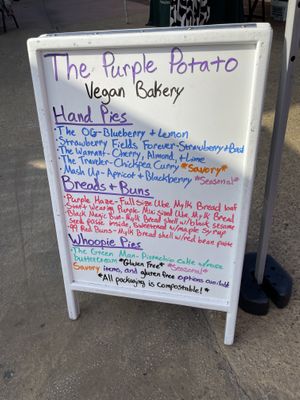 Bakery
Potato
The Purple Potato
Vegan Bakery
Hand Pies
- The OG - Blueberry + Lemon
- Strawberry Fields Forever - Strawberry + Basil
- The Warrant - Cherry, Almond, + Lime
- The Traveler - Chickpea Curry *Savory*
- Mash Up - Apricot + Blackberry *Seasonal*
Breads + Buns
- Purple Haze - Full size Ube Mylk Bread loaf
- Start Wearing Purple - Mini sized Ube Mylk Bread
- Black Magic Bun - Mylk Bread shell w/ black sesame
seed paste inside, sweetened w/ maple syrup
- 99 Red Buns - Mylk Bread shell w/ red bean paste
Whoopie Pies
- The Green Man - Pistachio cake w/ rose
buttercream *Gluten Free* *Seasonal*
Savory items, and gluten free options available
*All packaging is compostable!*